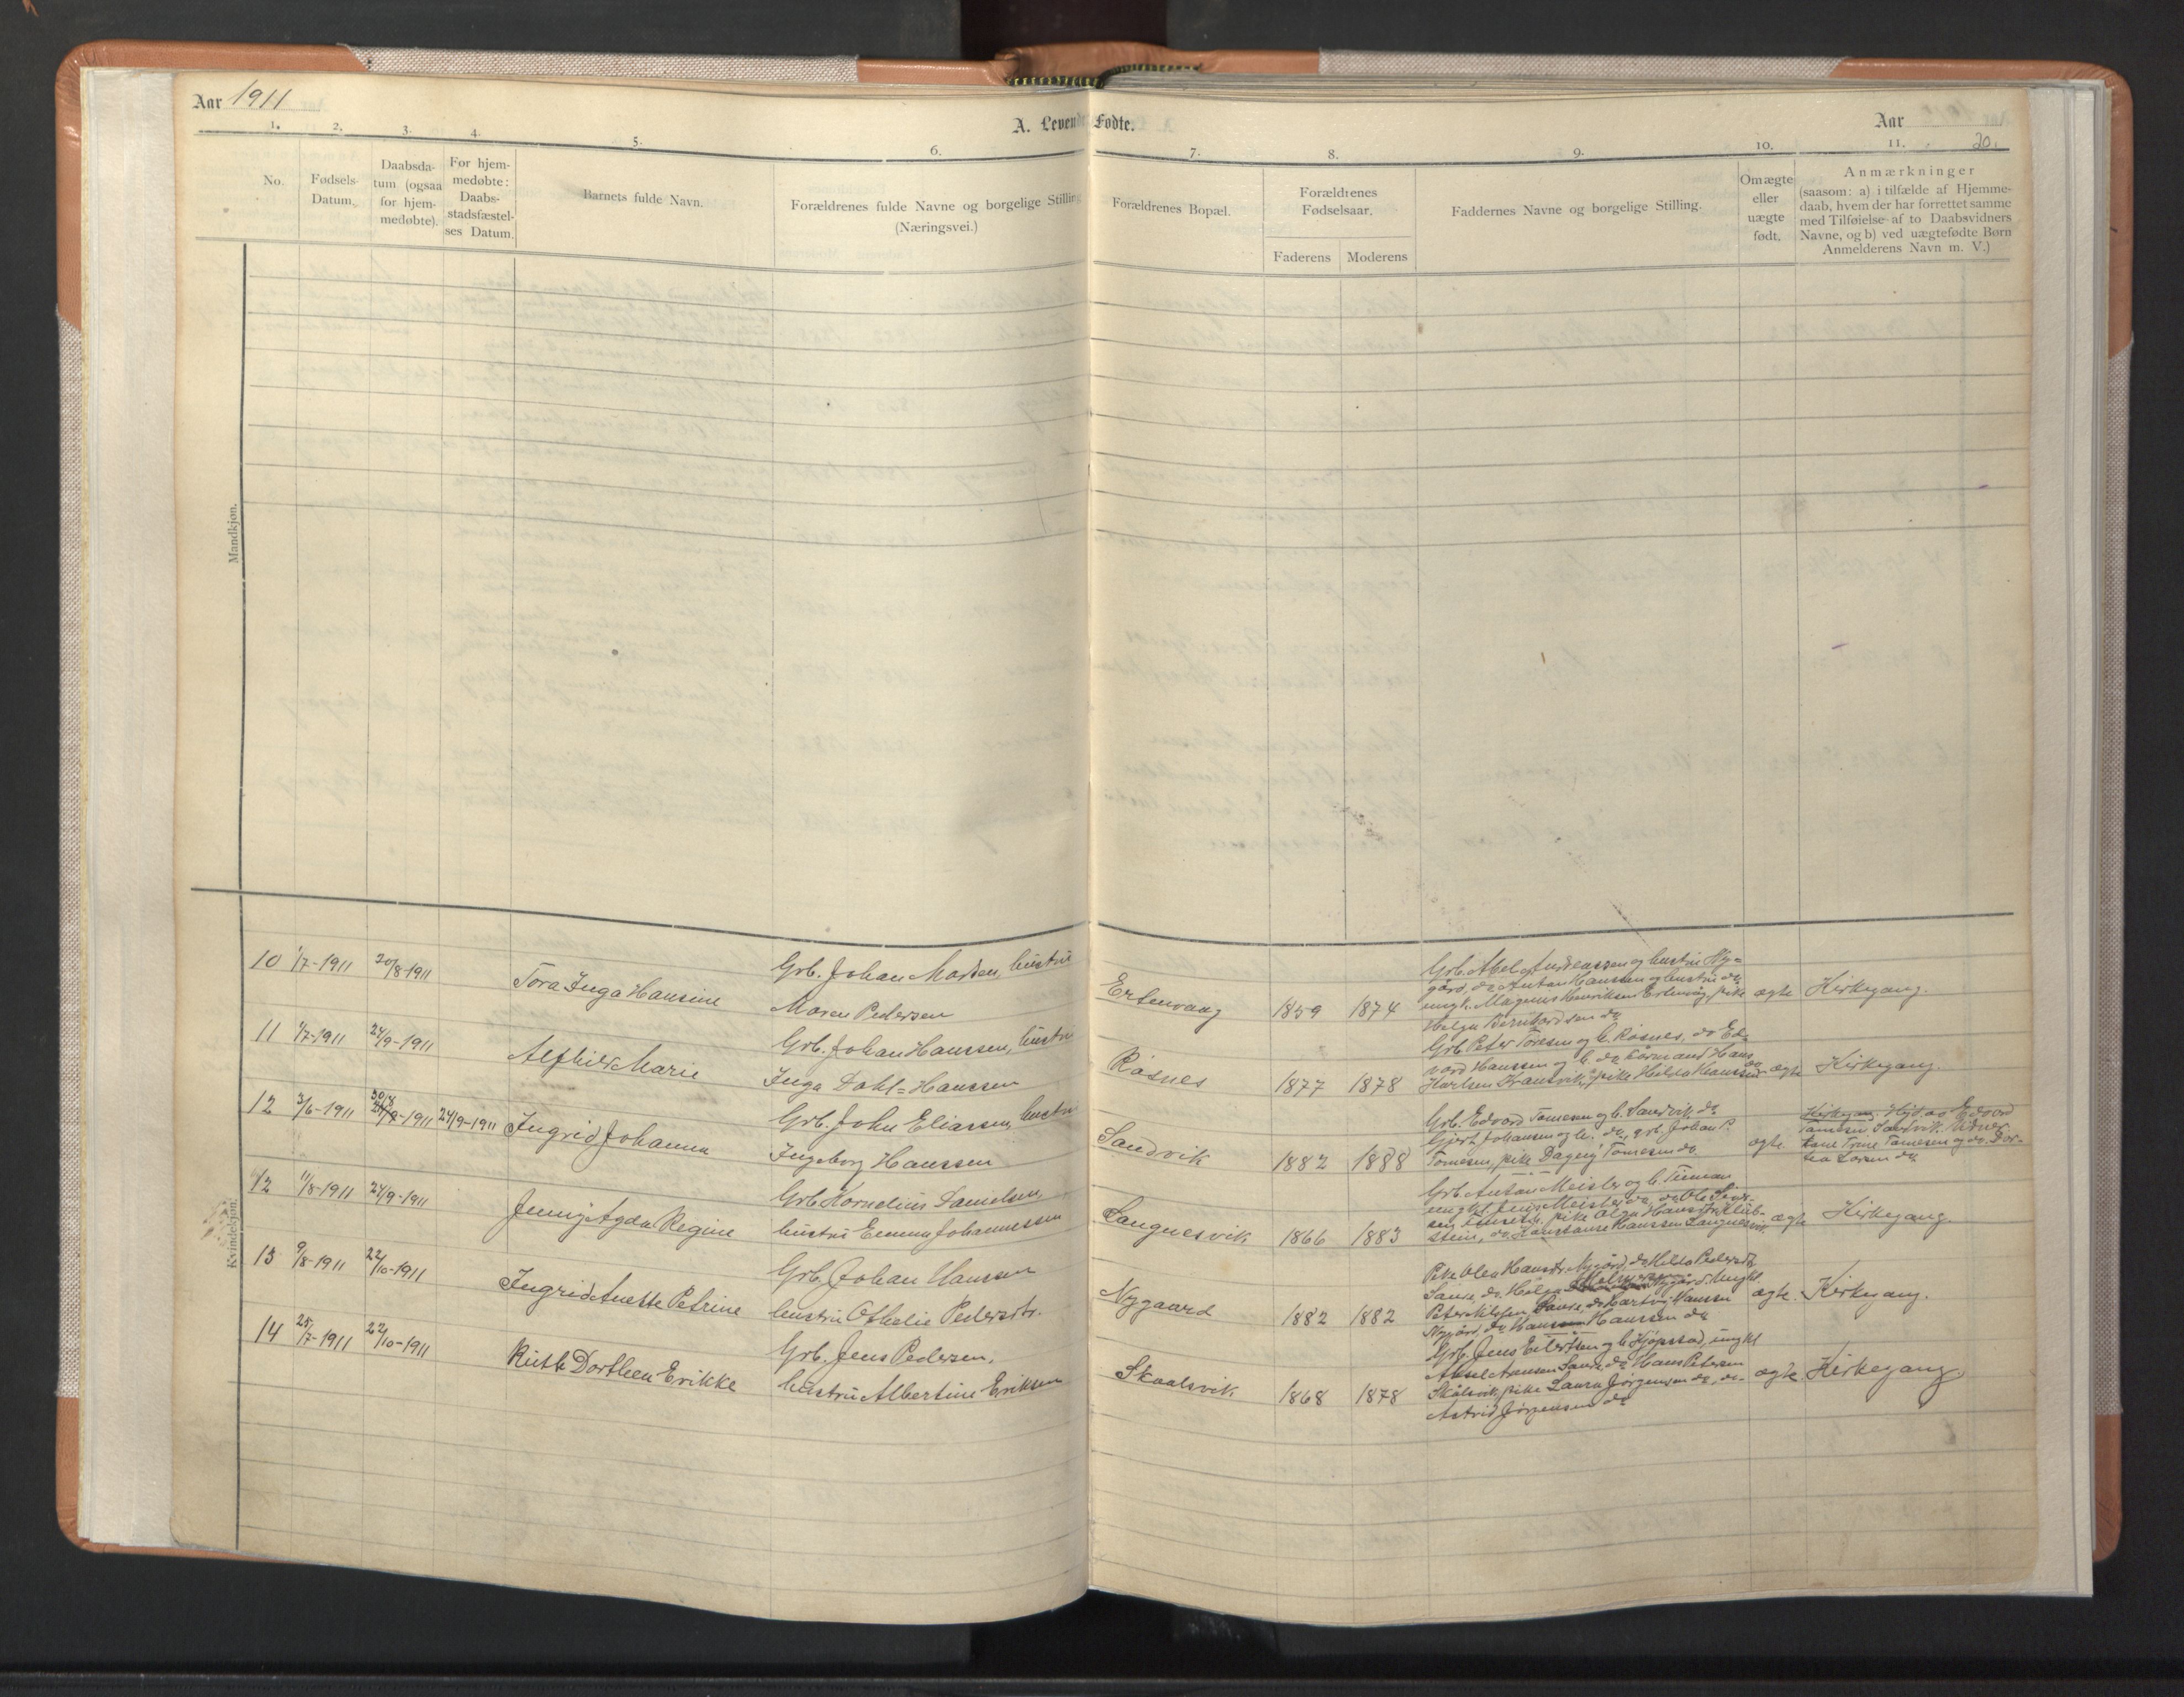 Aar 1911
A. Levende Fødte.
Aar
20.
1. 2. 3. 4. 5. 6. 7. 8. 9. 10. 11.
No.
Fødsels-
Datum.
Daabsda-
tum (ogsaa
for hjem-
medøbte).
For hjem-
medøbte:
Daabs-
stadsfæstel-
ses Datum.
Barnets fulde Navn.
Forældrenes fulde Navne og borgelige Stilling
(Næringsvei.)
Forældrenes Bopæl.
Forældrenes
Fødselsaar.
Faderens Moderens
Faddernes Navne og borgelige Stilling.
Om ægte
eller
uægte
født.
Anmærkninger
(saasom: a) i tilfælde af Hjemme-
daab, hvem der har forrettet samme
med Tilføielse af to Daabsvidners
Navne, og b) ved uægtefødte Børn
Anmelderens Navn m. V.)
Mandkjøn.
Kvindekjøn.
10 1/7-1911 20/8-1911
Tora Inga Hansine
Grb. Johan Hustru
Maren Pedersen
1859 1874
Grb. Abel Andreassen og hustru Ny-
gård, do Antan Hanssen og hustru do
ungk. Magnus Henriksen pike
Helga do
ægte Kirkegang.
11 1/7-1911 24/9-1911
Marie
Grb. Johan Hanssen, hustru
Inga Dahl=Hanssen
Røsnes 1877 1878
Grb. Peter og h. Røsnes, do Ed-
vard Hanssen og h. do Hans
pike Hilda Hanssen do
ægte Kirkegang.
12 3/6-1911 24/9-1911
30/8
24/9-1911
Ingrid Johanna
Grb. John Eliassen, hustru
Ingeborg Hanssen
Sandvik 1882 1888
Grb. Edvard Tomesen og h. Sandvik do
Gjert Johansen og h. do, grb. Johan P.
Tomesen, pike Dagny Tomesen do
ægte
Kirkegang. Hjd. av Edvard
Tomesen Sandvik. Vidner
kone Trine Tomesen og do Dor-
tea Larsen do
12 11/8-1911 24/9-1911
Jenny Agda Regine
Grb. Kornelius Danielsen,
hustru Emma Johannessen
Langnesvik 1866 1883
Grb. Antan Meisler og h.
ungkl. Jens Meisler do, do Ole
pike Olga
stein, do Konstanse Hanssen Langnesvik
ægte Kirkegang.
13 9/8-1911 22/10-1911
Ingrid Anette Petrine
Grb. Johan Hanssen
hustru Othelie Pedersdtr.
Nygaard 1882 1882
Pike Olea Hansdtr. Nygård, do Hilda Pedersdtr.
Sande, do Helga Nygård. Ungkl.
Peter Sande, do Hartvig Hanssen
Nygård, do Hanssen do
ægte. Kirkegang.
14 25/7-1911 22/10-1911
Ruth Dorthea Erikke
Grb. Jens Pedersen,
hustru Albertine Eriksen
Skaalsvik 1868 1878
Grb. Jens Eilertsen og h. Kjøpstad, ungkl
Aksel Sande do Hans Petersen
Skålsvik, pike Laura Jørgensen do, do
Astrid Jørgensen do
ægte. Kirkegang.